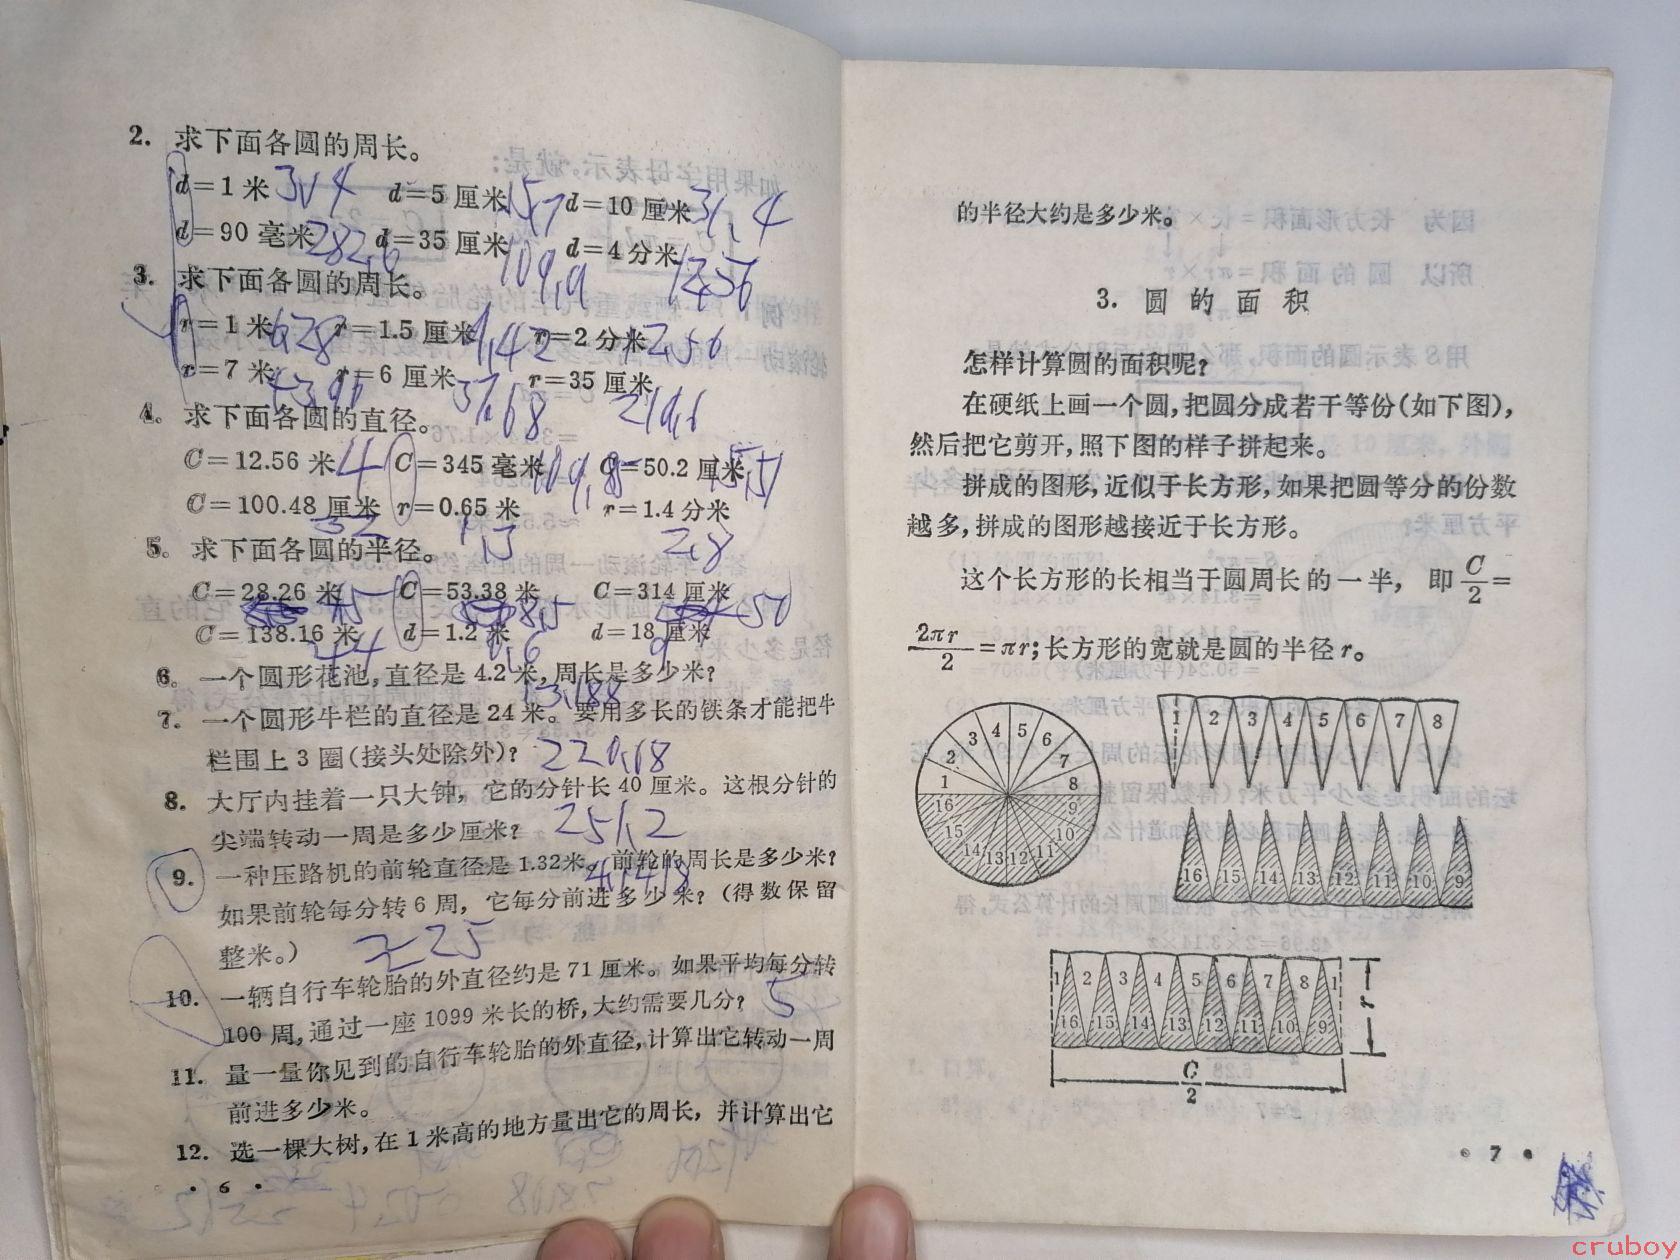 2. 求下面各圆的周长。
d=1 米 3.14 d=5 厘米 15.7 d=10 厘米 31.4
d=90 毫米 282.6 d=35 厘米 109.9 d=4 分米 12.56
3. 求下面各圆的周长。
r=1 米 6.28 r=1.5 厘米 9.42 r=2 分米 12.56
r=7 米 43.96 r=6 厘米 37.68 r=35 厘米 219.6
4. 求下面各圆的直径。
C=12.56 米 4 C=345 毫米 109.8 C=50.2 厘米 15.51
C=100.48 厘米 32 r=0.65 米 1.3 r=1.4 分米 2.8
5. 求下面各圆的半径。
C=28.26 米 4.5 C=53.38 米 8.5 C=314 厘米 50
C=138.16 米 44 d=1.2 米 0.6 d=18 厘米 9
6. 一个圆形花池,直径是 4.2 米,周长是多少米? 13.188
7. 一个圆形牛栏的直径是 24 米。要用多长的铁条才能把牛
栏围上 3 圈(接头处除外)? 226.08
8. 大厅内挂着一只大钟,它的分针长 40 厘米。这根分针的
尖端转动一周是多少厘米? 251.2
9. 一种压路机的前轮直径是 1.32 米。前轮的周长是多少米?
如果前轮每分转 6 周,它每分前进多少米?(得数保留
整米。) ≈25
10. 一辆自行车轮胎的外直径约是 71 厘米。如果平均每分转
100 周,通过一座 1099 米长的桥,大约需要几分? 5
11. 量一量你见到的自行车轮胎的外直径,计算出它转动一周
前进多少米。
12. 选一棵大树,在 1 米高的地方量出它的周长,并计算出它
• 6 •
的半径大约是多少米。
3. 圆的面积
怎样计算圆的面积呢?
在硬纸上画一个圆,把圆分成若干等份(如下图),
然后把它剪开,照下图的样子拼起来。
拼成的图形,近似于长方形,如果把圆等分的份数
越多,拼成的图形越接近于长方形。
这个长方形的长相当于圆周长的一半,即 C/2=
2πr/2=πr;长方形的宽就是圆的半径 r。
1 2 3 4 5 6 7 8
16 15 14 13 12 11 10 9
1 2 3 4 5 6 7 8
16 15 14 13 12 11 10 9
1 2 3 4 5 6 7 8 1
16 15 14 13 12 11 10 9
r
C/2
• 7 •
cruboy